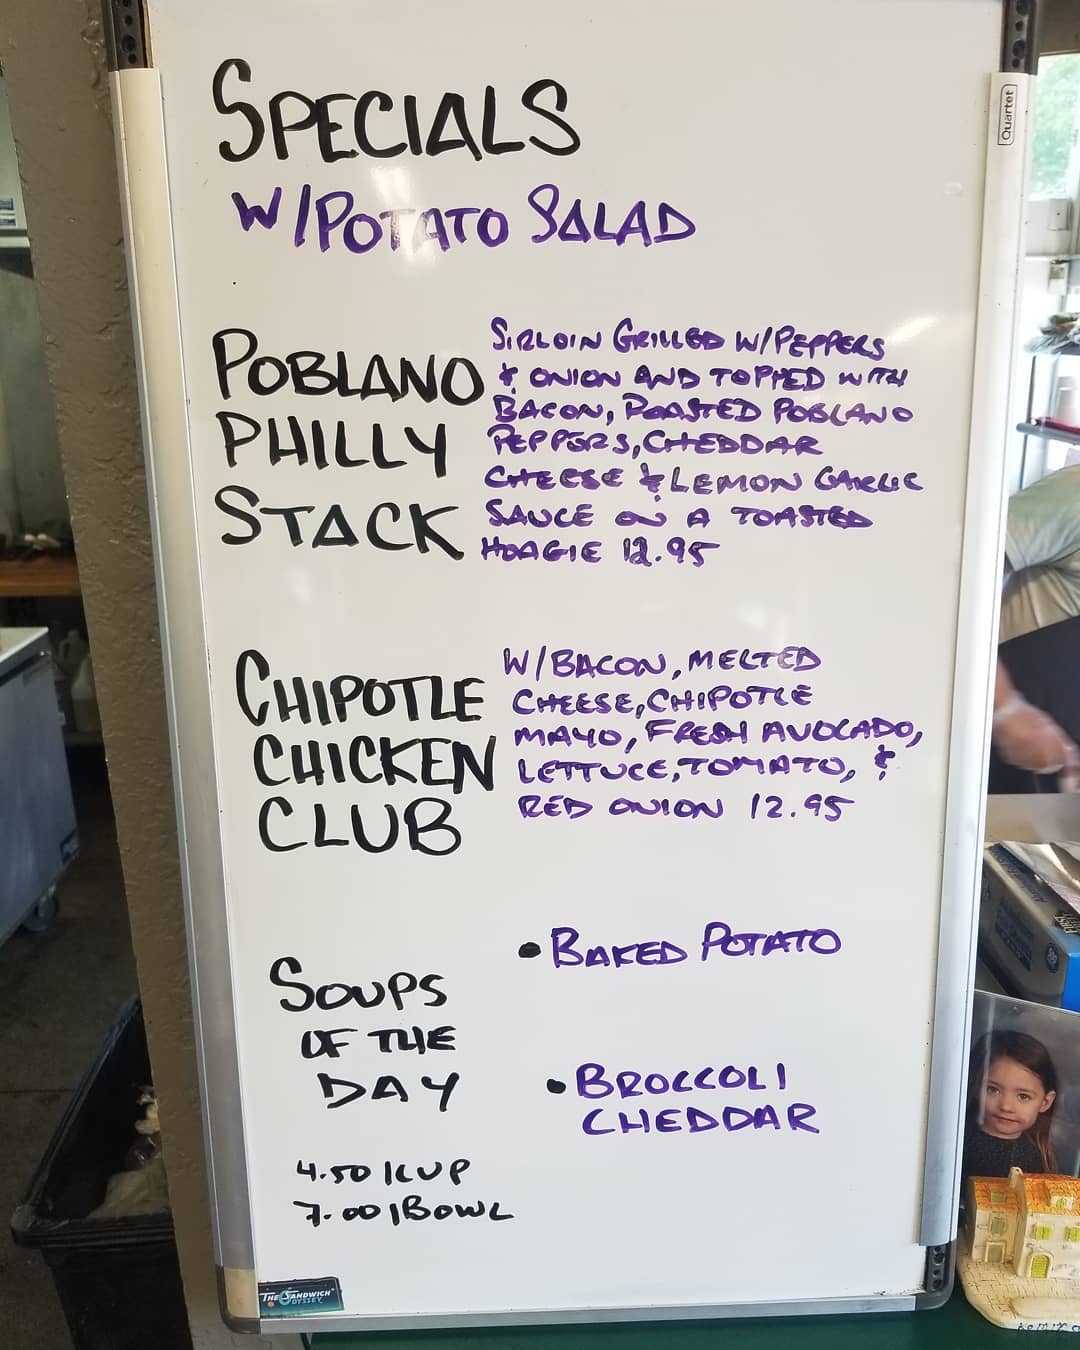 SPECIALS
W/POTATO SALAD
POBLANO
PHILLY
STACK
SIRLOIN GRILLED W/PEPPERS
& ONION AND TOPPED WITH
BACON, ROASTED POBLANO
PEPPERS, CHEDDAR
CHEESE & LEMON GARLIC
SAUCE ON A TOASTED
HOAGIE 12.95
CHIPOTLE
CHICKEN
CLUB
W/BACON, MELTED
CHEESE, CHIPOTLE
MAYO, FRESH AVOCADO,
LETTUCE, TOMATO, &
RED ONION 12.95
SOUPS
OF THE
DAY
• BAKED POTATO
• BROCCOLI
CHEDDAR
4.50/CUP
7.00/BOWL
THE SANDWICH
ODYSSEY
Quartet